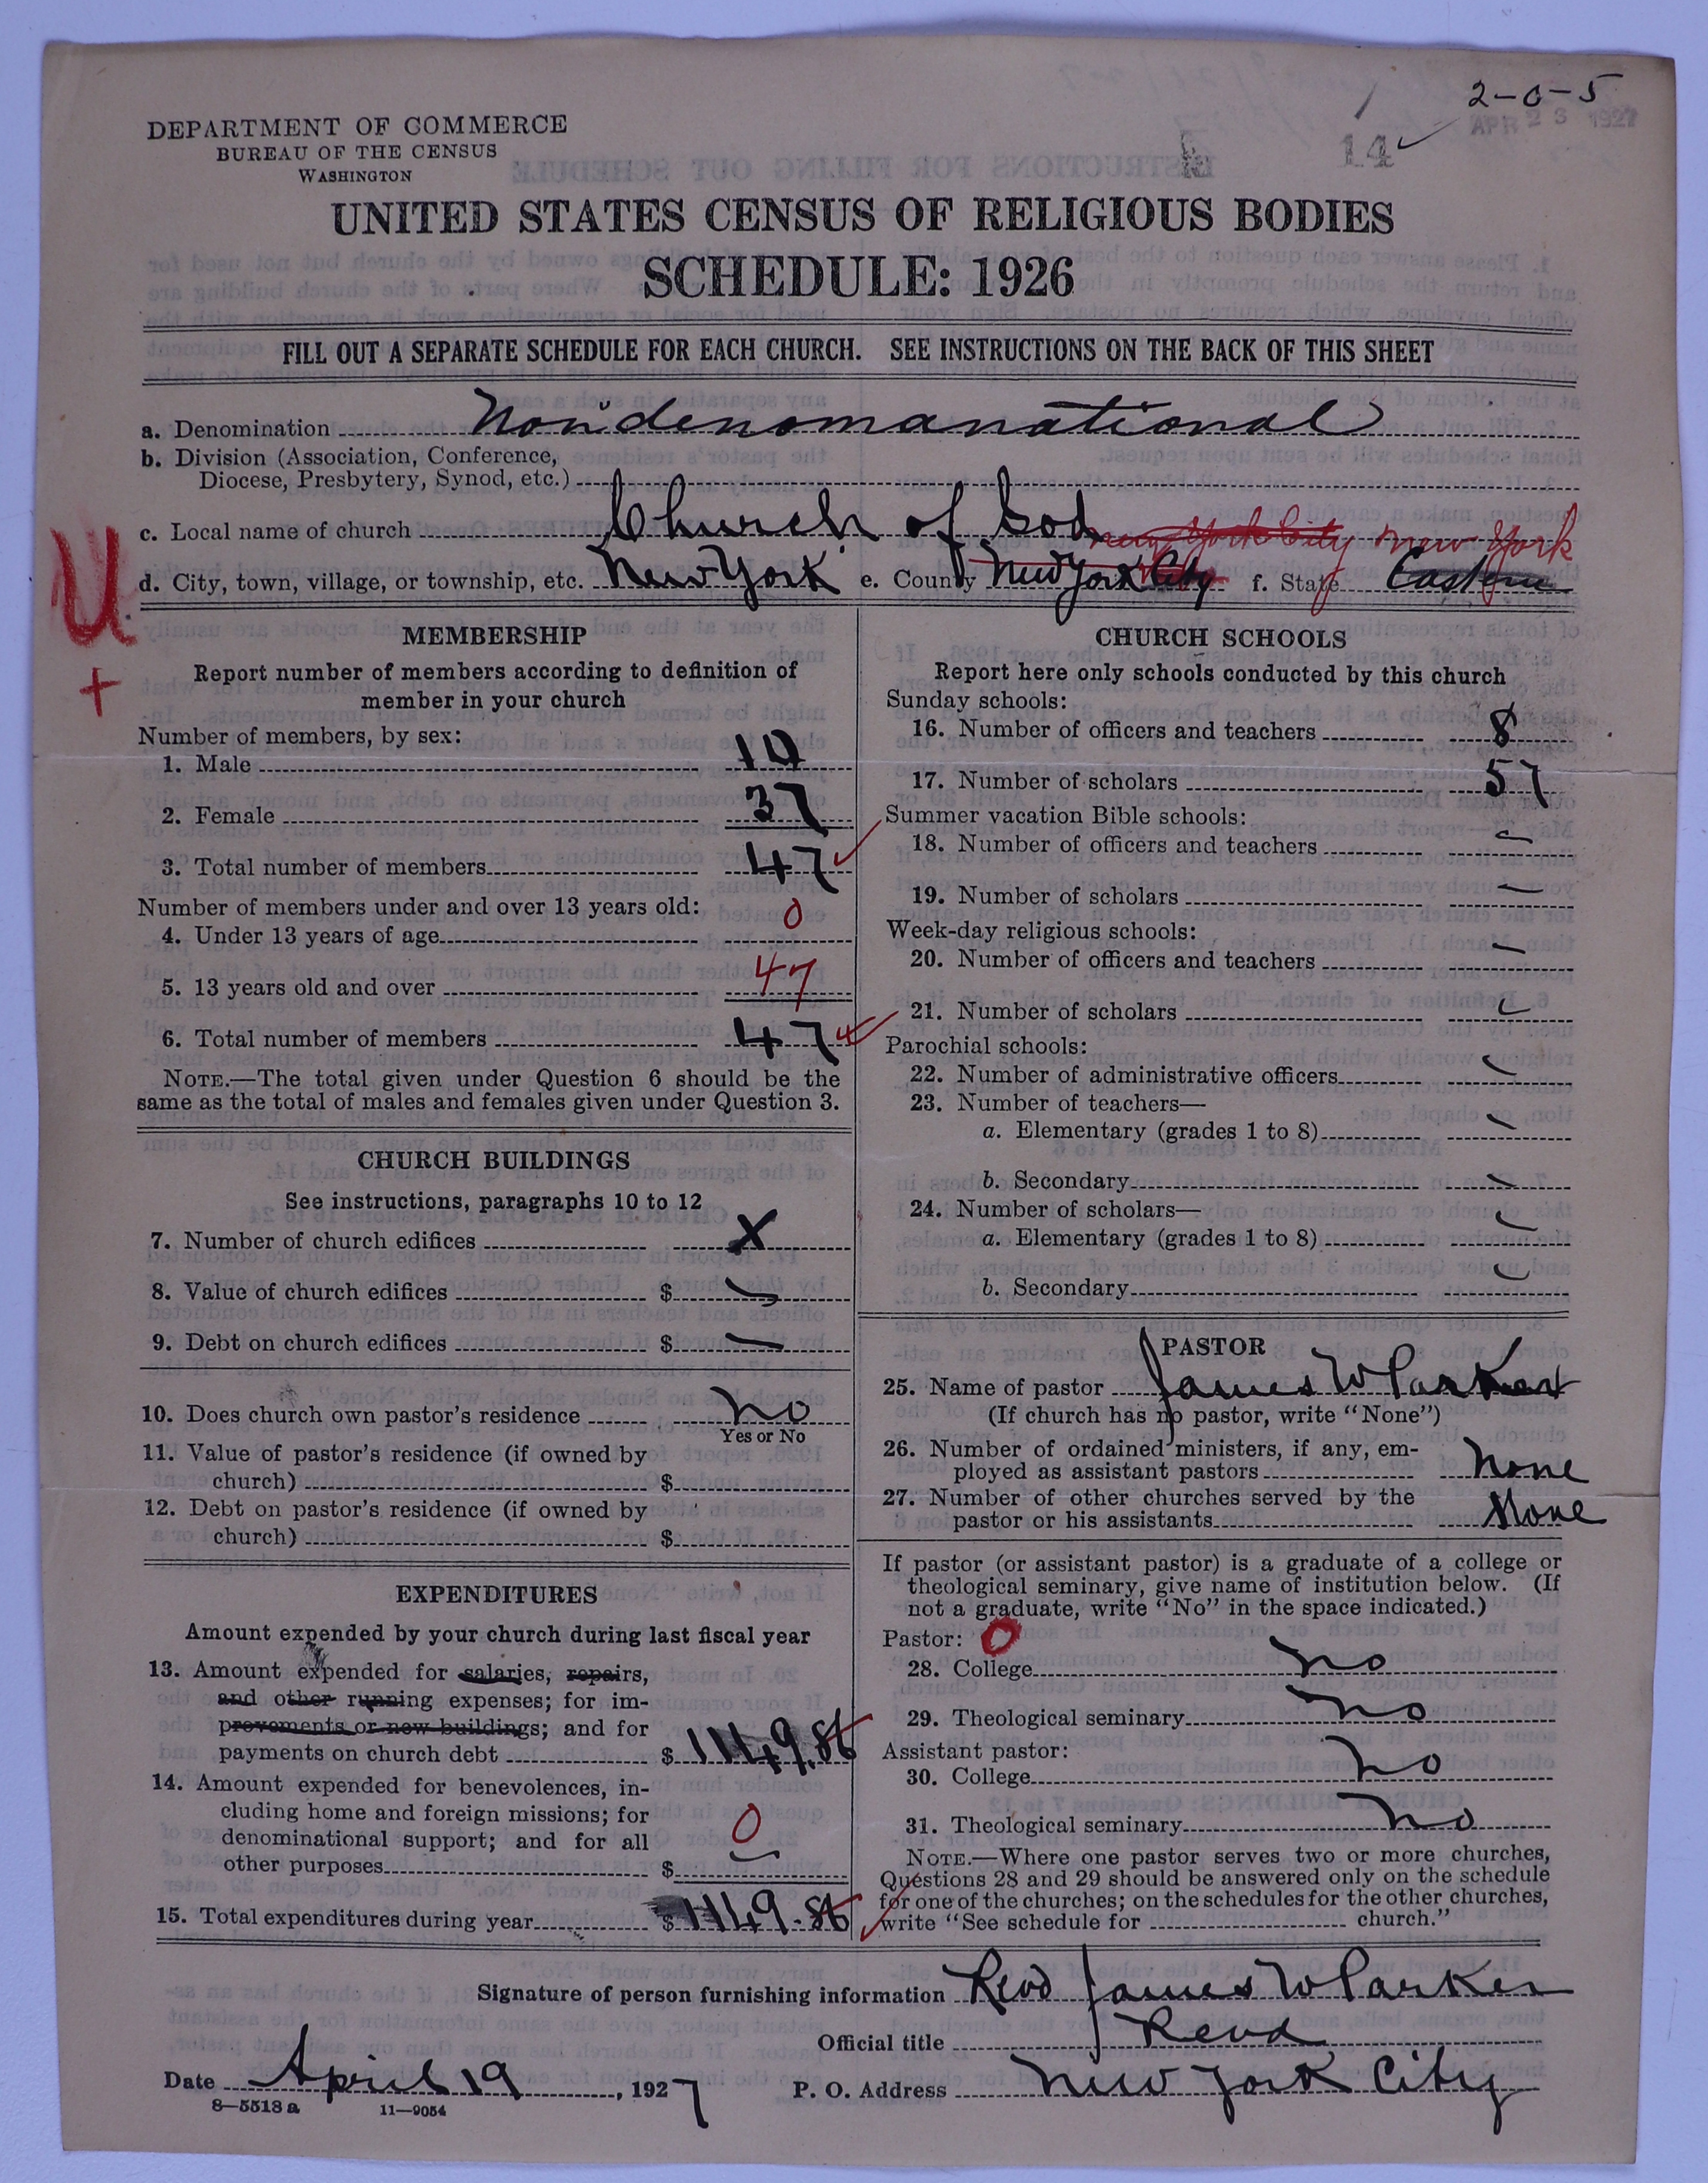 2-0-5
APR 23 1927
14
DEPARTMENT OF COMMERCE
BUREAU OF THE CENSUS
WASHINGTON
UNITED STATES CENSUS OF RELIGIOUS BODIES
SCHEDULE: 1926
FILL OUT A SEPARATE SCHEDULE FOR EACH CHURCH. SEE INSTRUCTIONS ON THE BACK OF THIS SHEET
a. Denomination Nondenomanational
b. Division (Association, Conference,
Diocese, Presbytery, Synod, etc.)
c. Local name of church Church of God New York City New York
d. City, town, village, or township, etc. New York e. County New York City f. State Eastern
U
+
MEMBERSHIP
Report number of members according to definition of
member in your church
Number of members, by sex:
1. Male 10
2. Female 37
3. Total number of members 47
Number of members under and over 13 years old:
4. Under 13 years of age 0
5. 13 years old and over 47
6. Total number of members 47
NOTE.—The total given under Question 6 should be the
same as the total of males and females given under Question 3.
CHURCH BUILDINGS
See instructions, paragraphs 10 to 12
7. Number of church edifices X
8. Value of church edifices $ —
9. Debt on church edifices $ —
10. Does church own pastor's residence No
Yes or No
11. Value of pastor's residence (if owned by
church) $
12. Debt on pastor's residence (if owned by
church) $
EXPENDITURES
Amount expended by your church during last fiscal year
13. Amount expended for salaries, repairs,
and other running expenses; for im-
provements or new buildings; and for
payments on church debt $ 1149.86
14. Amount expended for benevolences, in-
cluding home and foreign missions; for
denominational support; and for all
other purposes $ 0
15. Total expenditures during year $ 1149.86
CHURCH SCHOOLS
Report here only schools conducted by this church
Sunday schools:
16. Number of officers and teachers 8
17. Number of scholars 57
Summer vacation Bible schools:
18. Number of officers and teachers —
19. Number of scholars —
Week-day religious schools:
20. Number of officers and teachers —
21. Number of scholars —
Parochial schools:
22. Number of administrative officers —
23. Number of teachers—
a. Elementary (grades 1 to 8) —
b. Secondary —
24. Number of scholars—
a. Elementary (grades 1 to 8) —
b. Secondary —
PASTOR
25. Name of pastor James W Parker
(If church has no pastor, write "None")
26. Number of ordained ministers, if any, em-
ployed as assistant pastors None
27. Number of other churches served by the
pastor or his assistants None
If pastor (or assistant pastor) is a graduate of a college or
theological seminary, give name of institution below. (If
not a graduate, write "No" in the space indicated.)
Pastor: 0
28. College No
29. Theological seminary No
Assistant pastor:
30. College No
31. Theological seminary No
NOTE.—Where one pastor serves two or more churches,
Questions 28 and 29 should be answered only on the schedule
for one of the churches; on the schedules for the other churches,
write "See schedule for church."
Signature of person furnishing information Revd James W Parker
Official title Revd
Date April 19, 1927 P. O. Address New York City
8—5518 a 11—9054